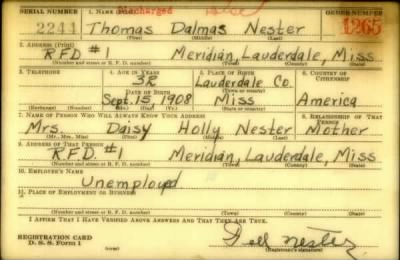 SERIAL NUMBER 1. NAME (Print) Discharged ORDER NUMBER
2244 Thomas Dalmas Nester 1265
(First) (Middle) (Last)
2. ADDRESS (Print)
RFD #1 Meridian, Lauderdale, Miss
(Number and street or R. F. D. number) (Town) (County) (State)
3. TELEPHONE 4. AGE IN YEARS 5. PLACE OF BIRTH 6. COUNTRY OF CITIZENSHIP
32 Lauderdale Co.
DATE OF BIRTH
Sept. 15, 1908 Miss America
(Exchange) (Number) (Mo.) (Day) (Yr.) (State or country)
7. NAME OF PERSON WHO WILL ALWAYS KNOW YOUR ADDRESS 8. RELATIONSHIP OF THAT PERSON
Mrs Daisy Holly Nester Mother
(Mr., Mrs., Miss) (First) (Middle) (Last)
9. ADDRESS OF THAT PERSON
RFD. #1 Meridian, Lauderdale, Miss
(Number and street or R. F. D. number) (Town) (County) (State)
10. EMPLOYER'S NAME
Unemployed
11. PLACE OF EMPLOYMENT OR BUSINESS
(Number and street or R. F. D. number) (Town) (County) (State)
I AFFIRM THAT I HAVE VERIFIED ABOVE ANSWERS AND THAT THEY ARE TRUE.
REGISTRATION CARD
D. S. S. Form 1 Dell Nester
(Registrant's signature)